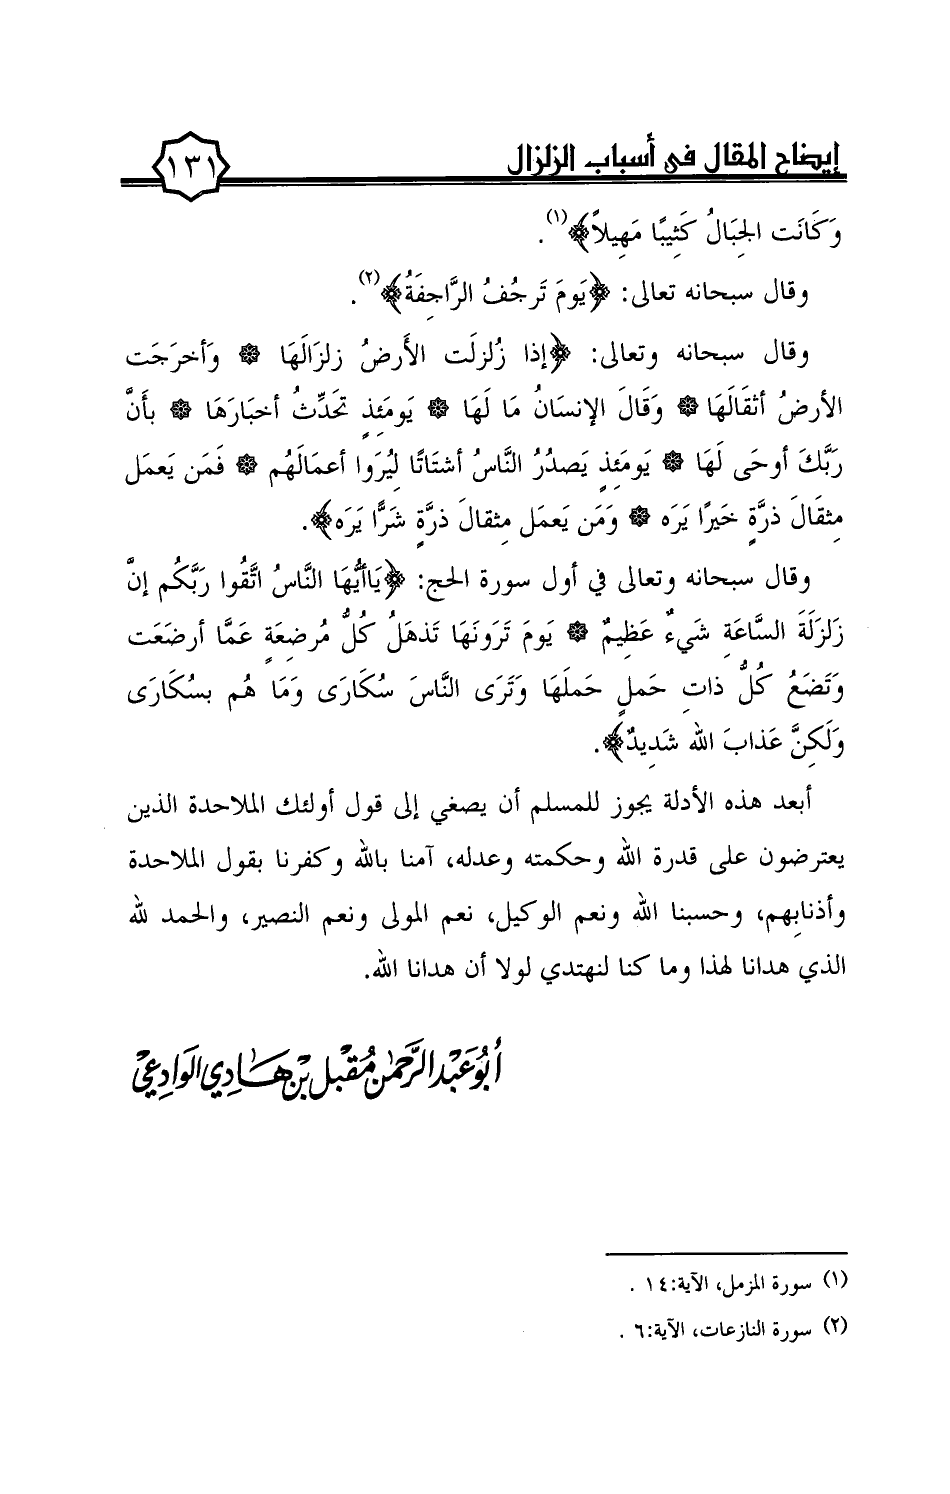 إيضاح المقال في أسباب الزلزال
١٣١
وَكَانَت الجِبَالُ كَثِيبًا مَهِيلاً﴾(١).
وقال سبحانه تعالى: ﴿يَومَ تَرجُفُ الرَّاجِفَةُ﴾(٢).
وقال سبحانه وتعالى: ﴿إذا زُلزلَت الأَرضُ زلزَالَهَا * وَأخرَجَت
الأرضُ أثقَالَهَا * وَقَالَ الإنسَانُ مَا لَهَا * يَومَئِذٍ تحَدِّثُ أخبَارَهَا * بأَنَّ
رَبَّكَ أوحَى لَهَا * يَومَئِذٍ يَصدُرُ النَّاسُ أشتَاتًا لِيُرَوا أعمَالَهُم * فَمَن يَعمَل
مِثقَالَ ذرَّةٍ خَيرًا يَرَه * وَمَن يَعمَل مِثقالَ ذرَّةٍ شَرًّا يَرَه﴾.
وقال سبحانه وتعالى في أول سورة الحج: ﴿يَاأيُّهَا النَّاسُ اتَّقُوا رَبَّكُم إنَّ
زَلزَلَةَ السَّاعَةِ شَيءٌ عَظِيمٌ * يَومَ تَرَونَهَا تَذهَلُ كُلُّ مُرضِعَةٍ عَمَّا أرضَعَت
وَتَضَعُ كُلُّ ذاتِ حَملٍ حَملَهَا وَتَرَى النَّاسَ سُكَارَى وَمَا هُم بسُكَارَى
وَلَكِنَّ عَذابَ الله شَدِيدٌ﴾.
أبعد هذه الأدلة يجوز للمسلم أن يصغي إلى قول أولئك الملاحدة الذين
يعترضون على قدرة الله وحكمته وعدله، آمنا بالله وكفرنا بقول الملاحدة
وأذنابِهم، وحسبنا الله ونعم الوكيل، نعم المولى ونعم النصير، والحمد لله
الذي هدانا لهذا وما كنا لنهتدي لولا أن هدانا الله.
أبُو عَبْد الرَّحمٰن مُقْبِل بْن هَادِي الوَادِعِيْ
(١) سورة المزمل، الآية:١٤ .
(٢) سورة النازعات، الآية:٦ .